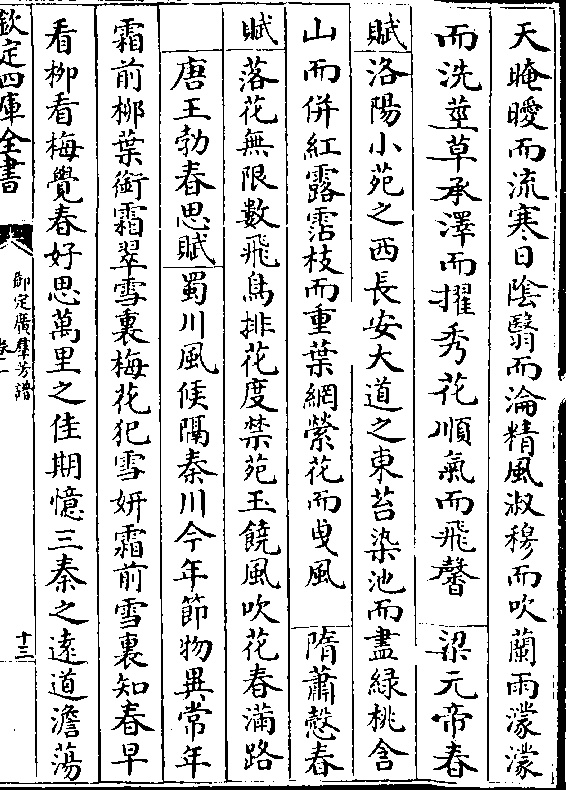 天晻曖而流寒日陰翳而淪精風淑穆而吹蘭雨濛濛
而洗莖草承澤而擢秀花順氣而飛馨　梁元帝春
賦洛陽小苑之西長安大道之東苔染池而盡緑桃含
山而併紅露霑枝而重葉網縈花而曳風　隋蕭慤春
賦落花無限數飛鳥排花度禁苑玉饒風吹花春滿路
唐王勃春思賦蜀川風候隔秦川今年節物異常年
霜前柳葉銜霜翠雪裏梅花犯雪妍霜前雪裏知春早
看柳看梅覺春好思萬里之佳期憶三秦之遠道澹蕩
欽定四庫全書
御定廣羣芳譜
卷一
十三